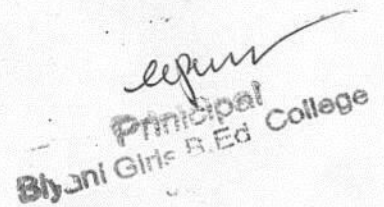 Prinicipal
Biyani Girls B.Ed College